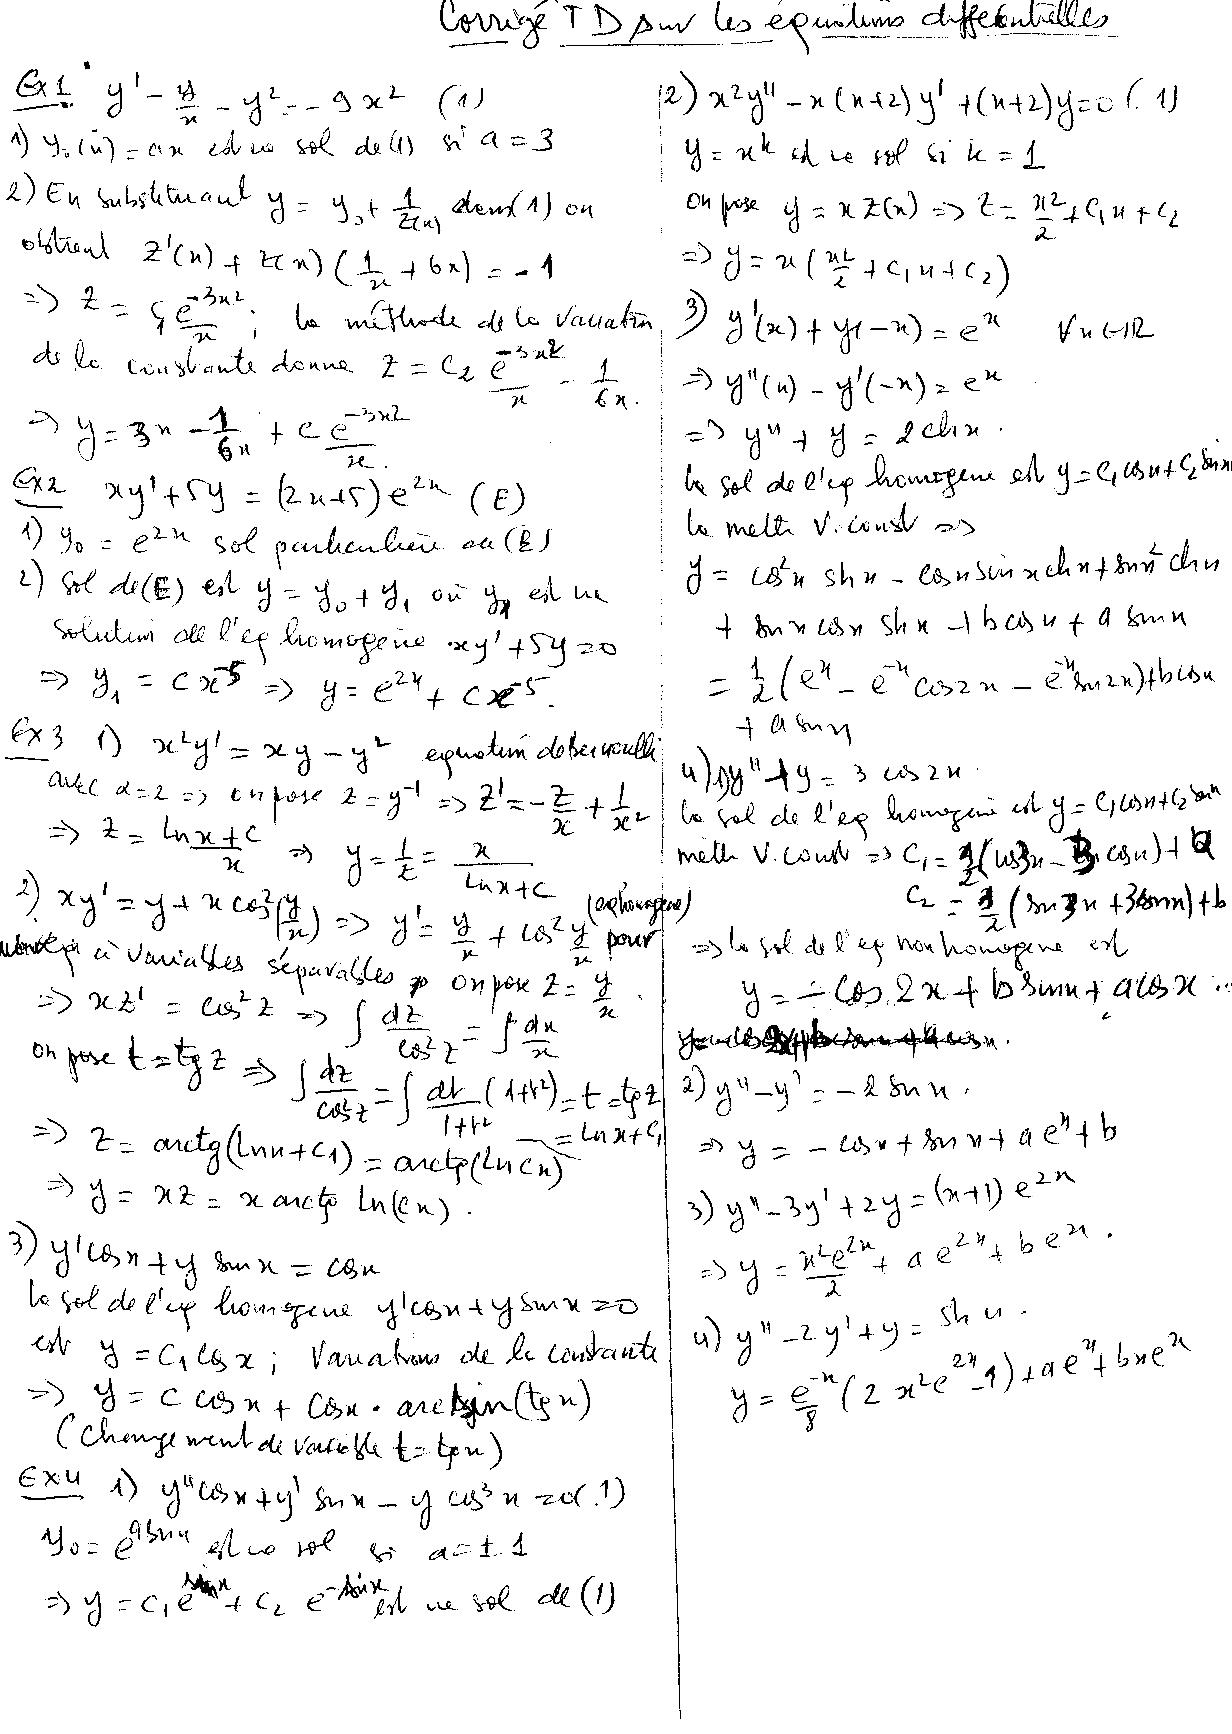 Corrigé TD sur les équations différentielles
Ex1. y' - y/x - y² = -9x² (1)
1) y₀(x) = ax est une sol de (1) si a = 3
2) En substituant y = y₀ + 1/z(x) dans (1) on
obtient z'(x) + z(x)(1/x + 6x) = -1
=> z = C₁ e^{-3x²}/x ; la méthode de la variation
de la constante donne z = C₂ e^{-3x²}/x - 1/6x.
=> y = 3x - 1/6x + c e^{-3x²}/x.
Ex2 xy' + 5y = (2x+5)e^{2x} (E)
1) y₀ = e^{2x} sol particulière de (E)
2) sol de (E) est y = y₀ + y₁ où y₁ est une
solution de l'eq homogène xy' + 5y = 0
=> y₁ = cx^{-5} => y = e^{2x} + cx^{-5}.
Ex3 1) x²y' = xy - y² equation de bernoulli
avec α = 2 => on pose z = y^{-1} => z' = -z/x + 1/x²
=> z = (ln x + c)/x => y = 1/z = x/(ln x + c)
2) xy' = y + x cos²(y/x) => y' = y/x + cos² y/x (eq homogène) pour
à variables séparables on pose z = y/x.
=> xz' = cos² z => ∫ dz/cos² z = ∫ dx/x
on pose t = tg z => ∫ dz/cos² z = ∫ dt/(1+t²) (1+t²) = t = tg z
= ln x + C₁
=> z = arctg(ln x + C₁) = arctg(ln cx)
=> y = xz = x arctg ln(cx).
3) y' cos x + y sin x = cos x
la sol de l'eq homogene y' cos x + y sin x = 0
est y = C₁ cos x ; Variations de la constante
=> y = c cos x + cos x . arc sin (tg x)
(Changement de variable t = tg x)
Ex4 1) y'' cos x + y' sin x - y cos³ x = 0 (.1)
y₀ = e^{a sin x} est une sol si a = ± 1
=> y = C₁ e^{sin x} + C₂ e^{-sin x} est une sol de (1)
2) x²y'' - x(x+2)y' + (x+2)y = 0 (. 1)
y = x^k est une sol si k = 1
on pose y = x z(x) => z = x²/2 + C₁x + C₂
=> y = x(x²/2 + C₁x + C₂)
3) y'(x) + y(-x) = e^x ∀x∈ℝ
=> y''(x) - y'(-x) = e^x
=> y'' + y = 2 ch x.
la sol de l'eq homogene est y = C₁ cos x + C₂ sin x
la meth V. const =>
y = cos² x sh x - cos x sin x ch x + sin² x ch x
+ sin x cos x sh x + b cos x + a sin x
= 1/2 (e^x - e^{-x} cos 2x - e^{-x} sin 2x) + b cos x
+ a sin x
4) 1) y'' + y = 3 cos 2x.
la sol de l'eq homogène est y = C₁ cos x + C₂ sin x
meth V. const => C₁ = 1/2 (cos 3x - 3 cos x) + a
C₂ = 1/2 (sin 3x + 3 sin x) + b
=> la sol de l'eq non homogene est
y = - cos 2x + b sin x + a cos x .
2) y'' - y' = -2 sin x .
=> y = - cos x + sin x + a e^x + b
3) y'' - 3y' + 2y = (x+1) e^{2x}
=> y = x² e^{2x}/2 + a e^{2x} + b e^x .
4) y'' - 2y' + y = sh x .
y = e^{-x}/8 (2 x² e^{2x} - 1) + a e^x + b x e^x